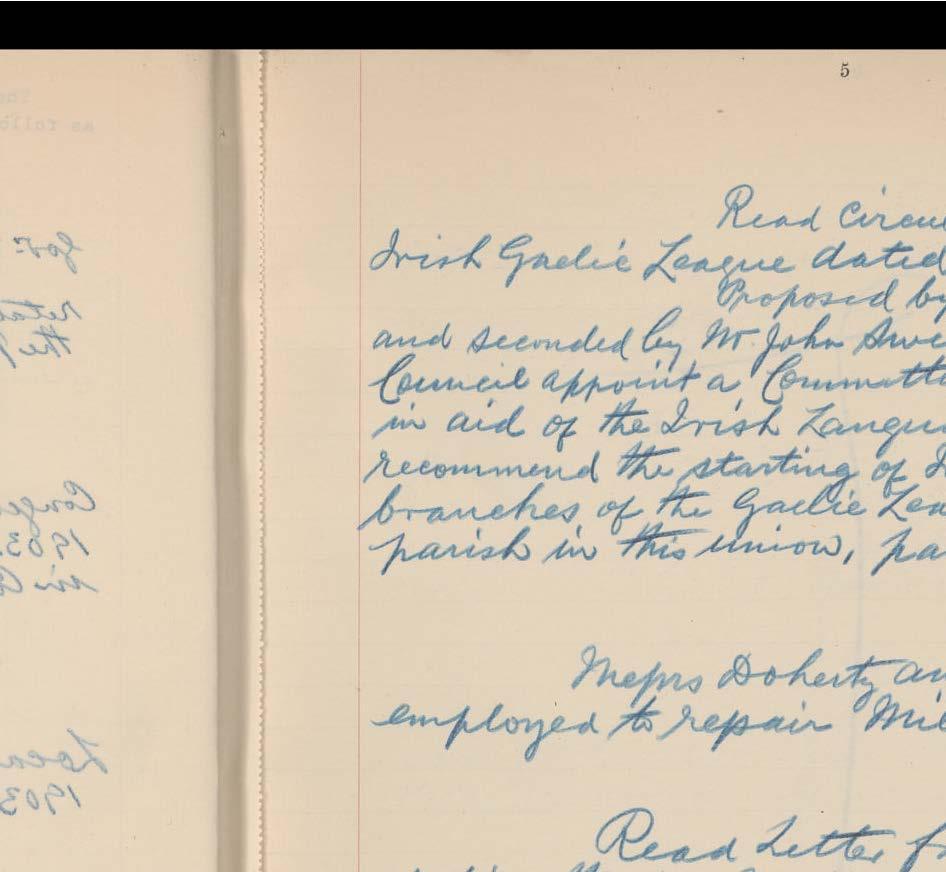 5
Read Circu
Irish Gaelic League dated
Proposed by
and seconded by Mr. John Swe
Council appoint a Committe
in aid of the Irish Langu
recommend the starting of I
branches of the Gaelic Lea
parish in this union, pa
Messrs Doherty an
employed to repair Mil
Read Letter fr